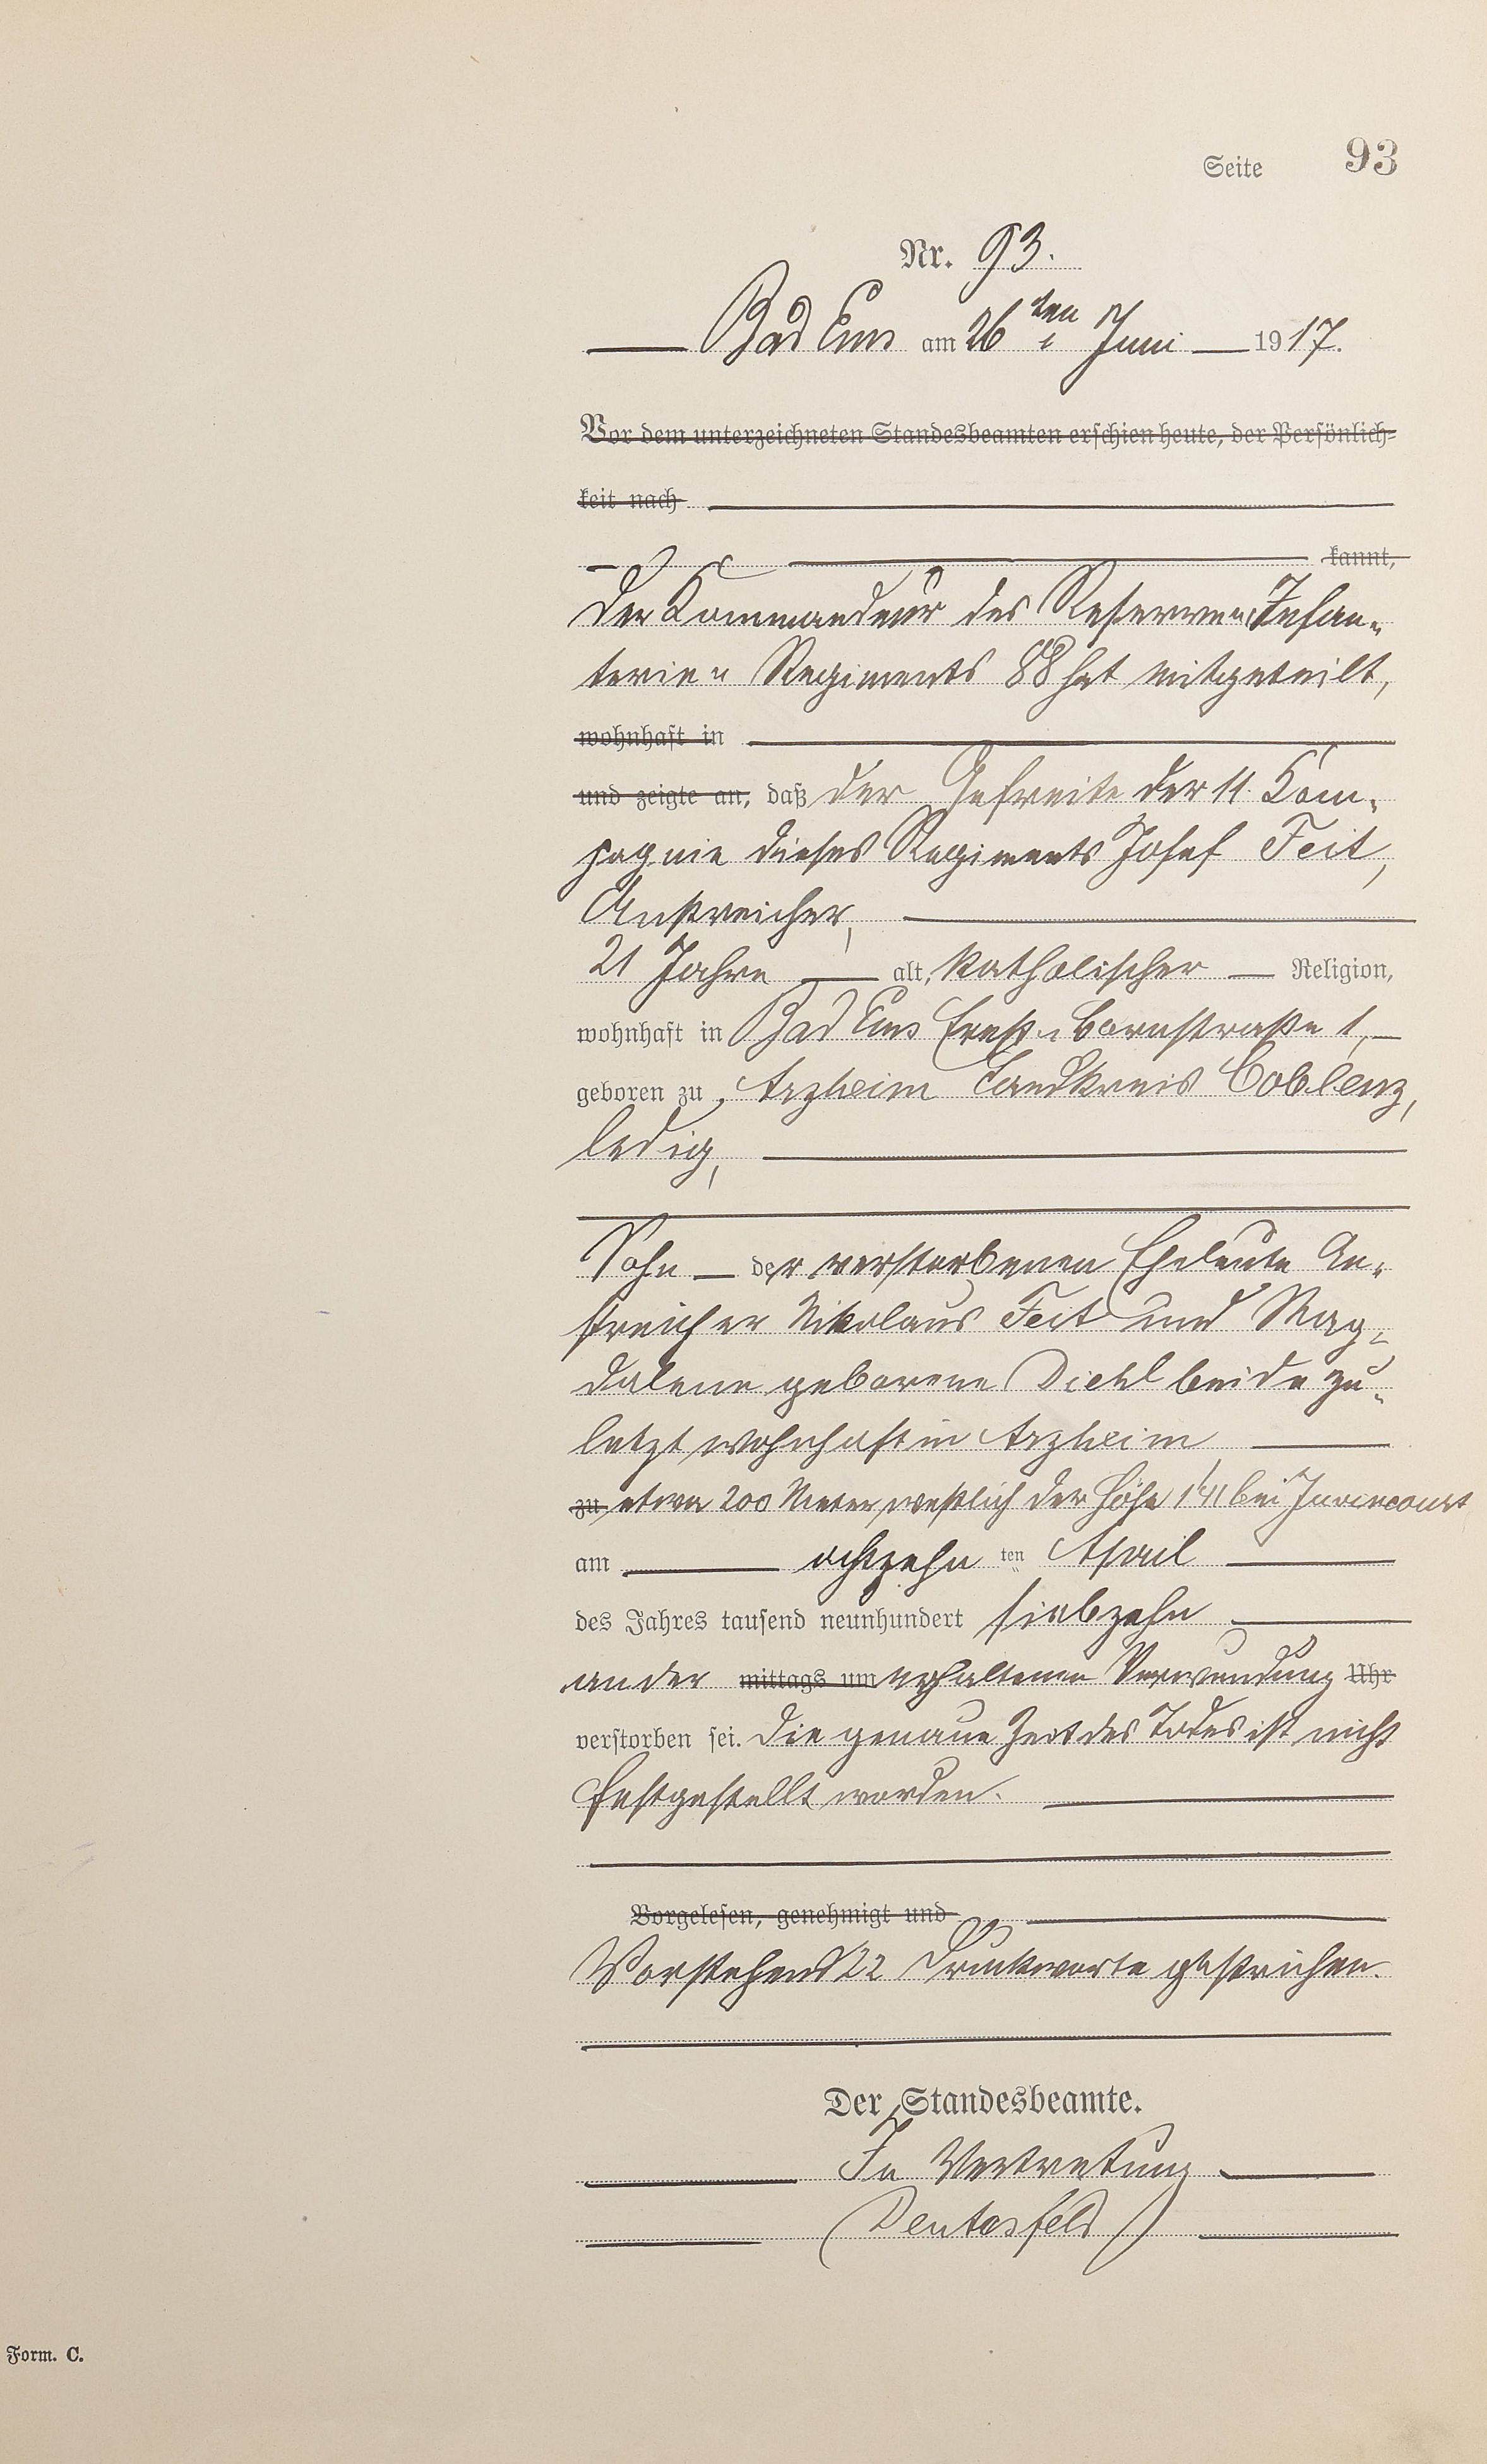 Seite 93
Nr. 93.
Bad Ems am 26ten Juni 1917.
Vor dem unterzeichneten Standesbeamten erschien heute, der Persönlich-
keit nach
kannt,
Der Kommandeur des Reserve-Infan-
terie-Regiments 88 hat mitgeteilt,
wohnhaft in
und zeigte an, daß der Gefreite der 11. Kom-
pagnie dieses Regiments Josef Feit,
Anstreicher,
21 Jahre alt, katholischer Religion,
wohnhaft in Bad Ems Ernst-Bornstraße 1,
geboren zu Arzheim Landkreis Coblenz,
ledig,
Sohn der verstorbenen Eheleute An-
streicher Nikolaus Feit und Mag-
dalene geborene Diehl beide zu-
letzt wohnhaft in Arzheim
zu etwa 200 Meter westlich der Höhe 141 bei Juvincourt
am achtzehnten April
des Jahres tausend neunhundert siebzehn
an der mittags um erhaltenen Verwundung Uhr
verstorben sei. Die genaue Zeit des Todes ist nicht
festgestellt worden.
Vorgelesen, genehmigt und
Vorstehend 22 Druckworte gestrichen.
Der Standesbeamte.
In Vertretung
Form. C.